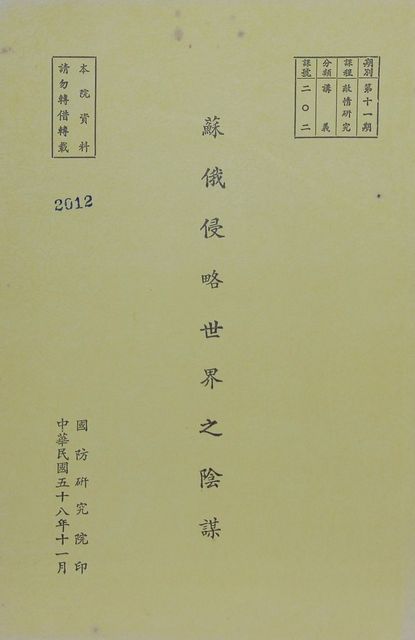 期別 第十一期
課程 敵情研究
分類 講義
課號 二〇二
蘇俄侵略世界之陰謀
本院資料
請勿轉借轉載
2012
國防研究院印
中華民國五十八年十一月